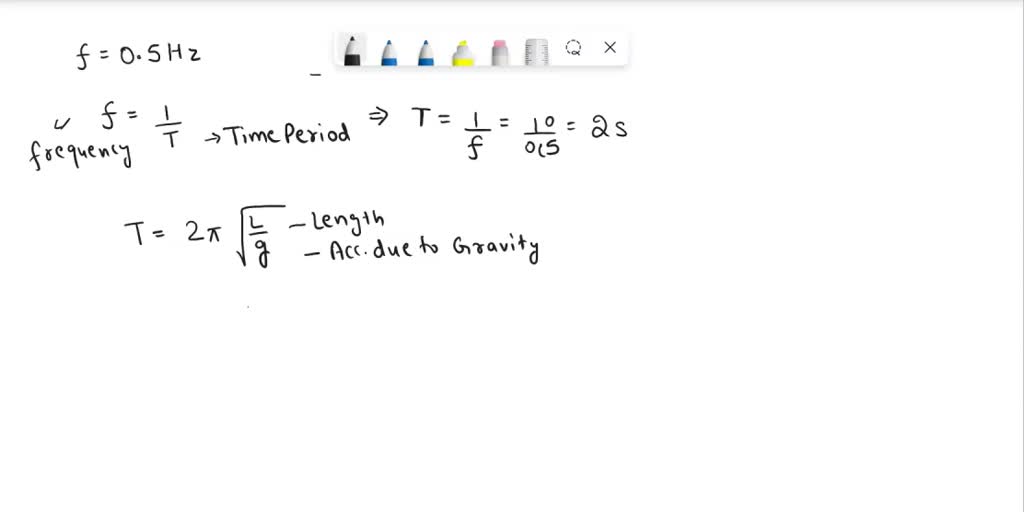 f = 0.5 Hz
f = 1/T → Time Period ⇒ T = 1/f = 10/05 = 2s
frequency
T = 2π √(L/g) – Length
– Acc. due to Gravity